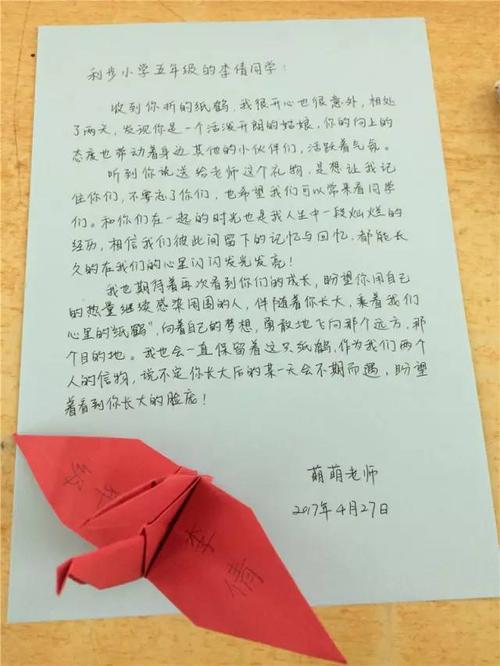 利步小学五年级的李倩同学：
收到你折的纸鹤，我很开心也很意外，相处
了两天，发现你是一个活泼开朗的姑娘，你的向上的
态度也带动着身边其他的小伙伴们，活跃着气氛。
听到你说送给老师这个礼物，是想让我记
住你们，不要忘了你们，也希望我们可以常来看同学
们。和你们在一起的时光也是我人生中一段灿烂的
经历，相信我们彼此间留下的记忆与回忆，都能长
久的在我们的心里闪闪发光发亮！
我也期待着再次看到你们的成长，盼望你用自己
的热量继续感染周围的人，伴随着你长大，乘着我们
心里的纸鹤"，向着自己的梦想，勇敢地飞向那个远方，那
个目的地。我也会一直保留着这只纸鹤，作为我们两个
人的信物，说不定你长大后的某一天会不期而遇，盼望
着看到你长大的脸庞！
萌萌老师
2017年4月27日
李倩